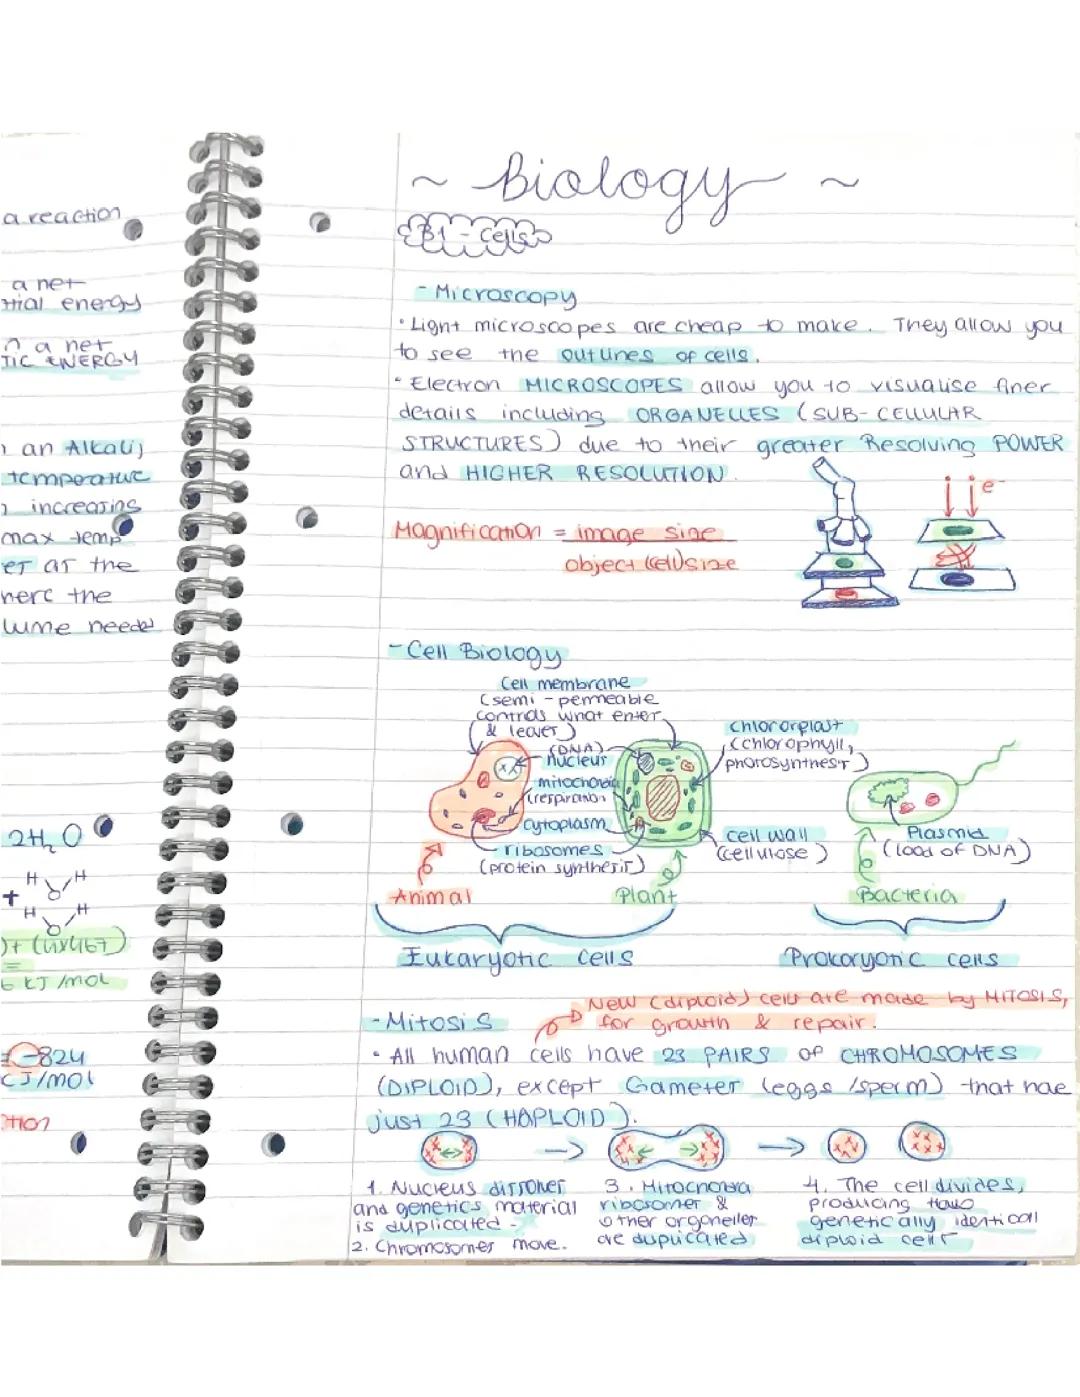 a reaction
a net
tial energy
n a net
TIC ENERGY
an Alkali,
temperature
increasing
max temp
er at the
here the
lume needed
2H₂O
+ H H
O
H H
O
)+ (4x467)
=
6 KJ/mol
= -824
KJ/mol
ction
~ Biology ~
B1 - Cells
- Microscopy
• Light microscopes are cheap to make. They allow you
to see the outlines of cells.
• Electron MICROSCOPES allow you to visualise finer
details including ORGANELLES (SUB-CELLULAR
STRUCTURES) due to their greater Resolving POWER
and HIGHER RESOLUTION.
e-
Magnification = image size
object (cell) size
- Cell Biology
Cell membrane
(semi-permeable
controls what enter
& leaves)
(DNA)
nucleus
mitochondia
(respiration
cytoplasm
ribosomes
(protein synthesis)
chlororplast
(chlorophyll,
photosynthesis)
cell wall
(cellulose)
Plasmid
(load of DNA)
Animal
Plant
Bacteria
Eukaryotic cells
Prokaryotic cells
New (diploid) cells are made by MITOSIS,
for growth & repair.
- Mitosis
• All human cells have 23 PAIRS OF CHROMOSOMES
(DIPLOID), except Gametes (eggs/sperm) that hae
just 23 (HAPLOID).
1. Nucleus dissolves
and genetics material
is duplicated -
2. Chromosomes move.
3. Mitochondia
ribosomes &
other organelles
are duplicated
4. The cell divides,
producing
genetically identicall
diploid cells